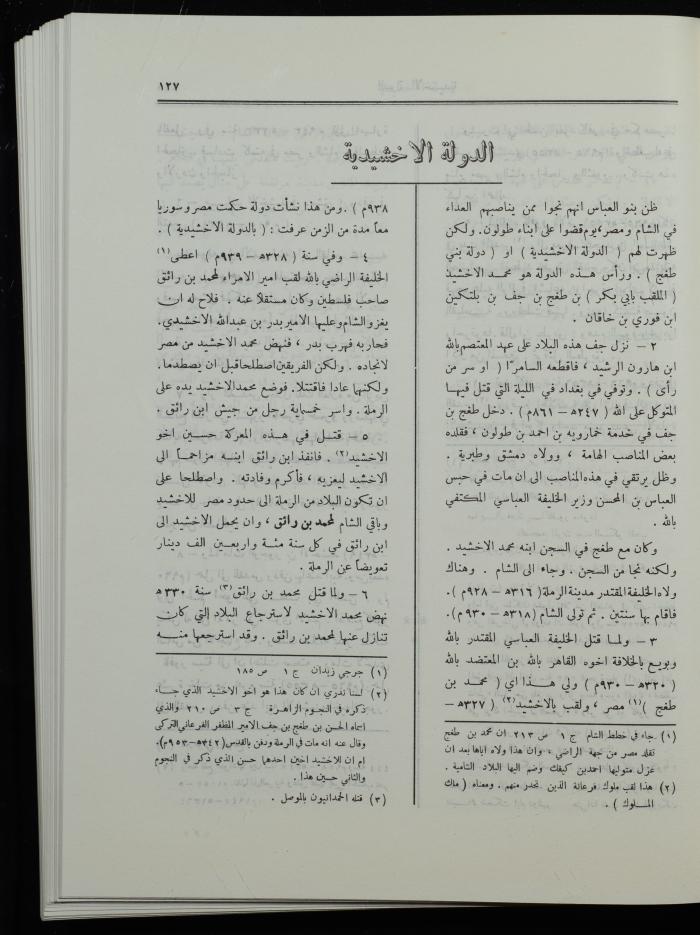 ١٢٧
الدولة الاخشيدية
ظن بنو العباس انهم نجوا ممن يناصبهم العداء
في الشام ومصر، يوم قضوا على ابناء طولون. ولكن
ظهرت لهم ( الدولة الاخشيدية ) او ( دولة بني
طغج ) . ورأس هذه الدولة هو محمد الاخشيد
( الملقب بابي بكر ) بن طغج بن جف بن بلتكين
ابن فوري بن خاقان .
٢ – نزل جف هذه البلاد على عهد المعتصم بالله
ابن هارون الرشيد ، فاقطعه السامرّا ( او سر من
رأى ) . وتوفي في بغداد في الليلة التي قتل فيها
المتوكل على الله ( ٢٤٧هـ – ٨٦١م ) . دخل طغج بن
جف في خدمة خمارويه بن احمد بن طولون ، فقلده
بعض المناصب الهامة ، وولاه دمشق وطبرية .
وظل يرتقي في هذه المناصب الى ان مات في حبس
العباس بن المحسن وزير الخليفة العباسي المكتفي
بالله .
وكان مع طغج في السجن ابنه محمد الاخشيد .
ولكنه نجا من السجن . وجاء الى الشام . وهناك
ولاه الخليفة المقتدر مدينة الرملة ( ٣١٦هـ – ٩٢٨م ) .
فاقام بها سنتين . ثم تولى الشام (٣١٨هـ – ٩٣٠م).
٣ – ولما قتل الخليفة العباسي المقتدر بالله
وبويع بالخلافة اخوه القاهر بالله بن المعتضد بالله
( ٣٢٠هـ – ٩٣٠م ) ولي هذا اي ( محمد بن
طغج )(١) مصر ، ولقب بالاخشيد(٢) ( ٣٢٧هـ –
(١) جاء في خطط الشام ج ١ ص ٢١٣ ان محمد بن طغج
تقلد مصر من جهة الراضي ، وان هذا ولاه اياها بعد ان
عزل متوليها احمد بن كيغلغ وضم اليها البلاد الشامية .
(٢) هذا لقب ملوك فرغانة الذين تحدر منهم . ومعناه ( ملك
الملوك ) .
٩٣٨م ) . ومن هذا نشأت دولة حكمت مصر وسوريا
معاً مدة من الزمن عرفت : ( بالدولة الاخشيدية ) .
٤ – وفي سنة ( ٣٢٨هـ – ٩٣٩م ) اعطى(١)
الخليفة الراضي بالله لقب امير الامراء لمحمد بن رائق
صاحب فلسطين وكان مستقلاً عنه . فلاح له ان
يغزو الشام وعليها الامير بدر بن عبدالله الاخشيدي.
فحاربه فهرب بدر ، فنهض محمد الاخشيد من مصر
لانجاده . ولكن الفريقين اصطلحا قبل ان يصطدما.
ولكنهما عادا فاقتتلا. فوضع محمد الاخشيد يده على
الرملة . واسر خمسماية رجل من جيش ابن رائق .
٥ – قتل في هذه المعركة حسين اخو
الاخشيد(٢) . فانفذ ابن رائق ابنه مزاحماً الى
الاخشيد ليعزيه ، فأكرم وفادته . واصطلحا على
ان تكون البلاد من الرملة الى حدود مصر للاخشيد
وباقي الشام لمحمد بن رائق ، وان يحمل الاخشيد الى
ابن رائق في كل سنة مئة واربعين الف دينار
تعويضاً عن الرملة .
٦ – ولما قتل محمد بن رائق(٣) سنة ٣٣٠هـ
نهض محمد الاخشيد لاسترجاع البلاد التي كان
تنازل عنها لمحمد بن رائق . وقد استرجعها منه
(١) جرجي زيدان ج ١ ص ١٨٥
(٢) لسنا ندري ان كان هذا هو اخو الاخشيد الذي جاء
ذكره في النجوم الزاهرة ج ٣ ص ٢١٠ والذي
اسماه الحسن بن طغج بن جف الامير المظفر الفرغاني التركي
وقال عنه انه مات في الرملة ودفن بالقدس (٣٤٢هـ – ٩٥٣م).
ام ان للاخشيد اخين احدهما حسن الذي ذكر في النجوم
والثاني حسين هذا .
(٣) قتله الحمدانيون بالموصل .